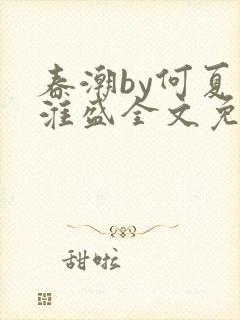 春潮by何夏
淮盛全文免
甜啦